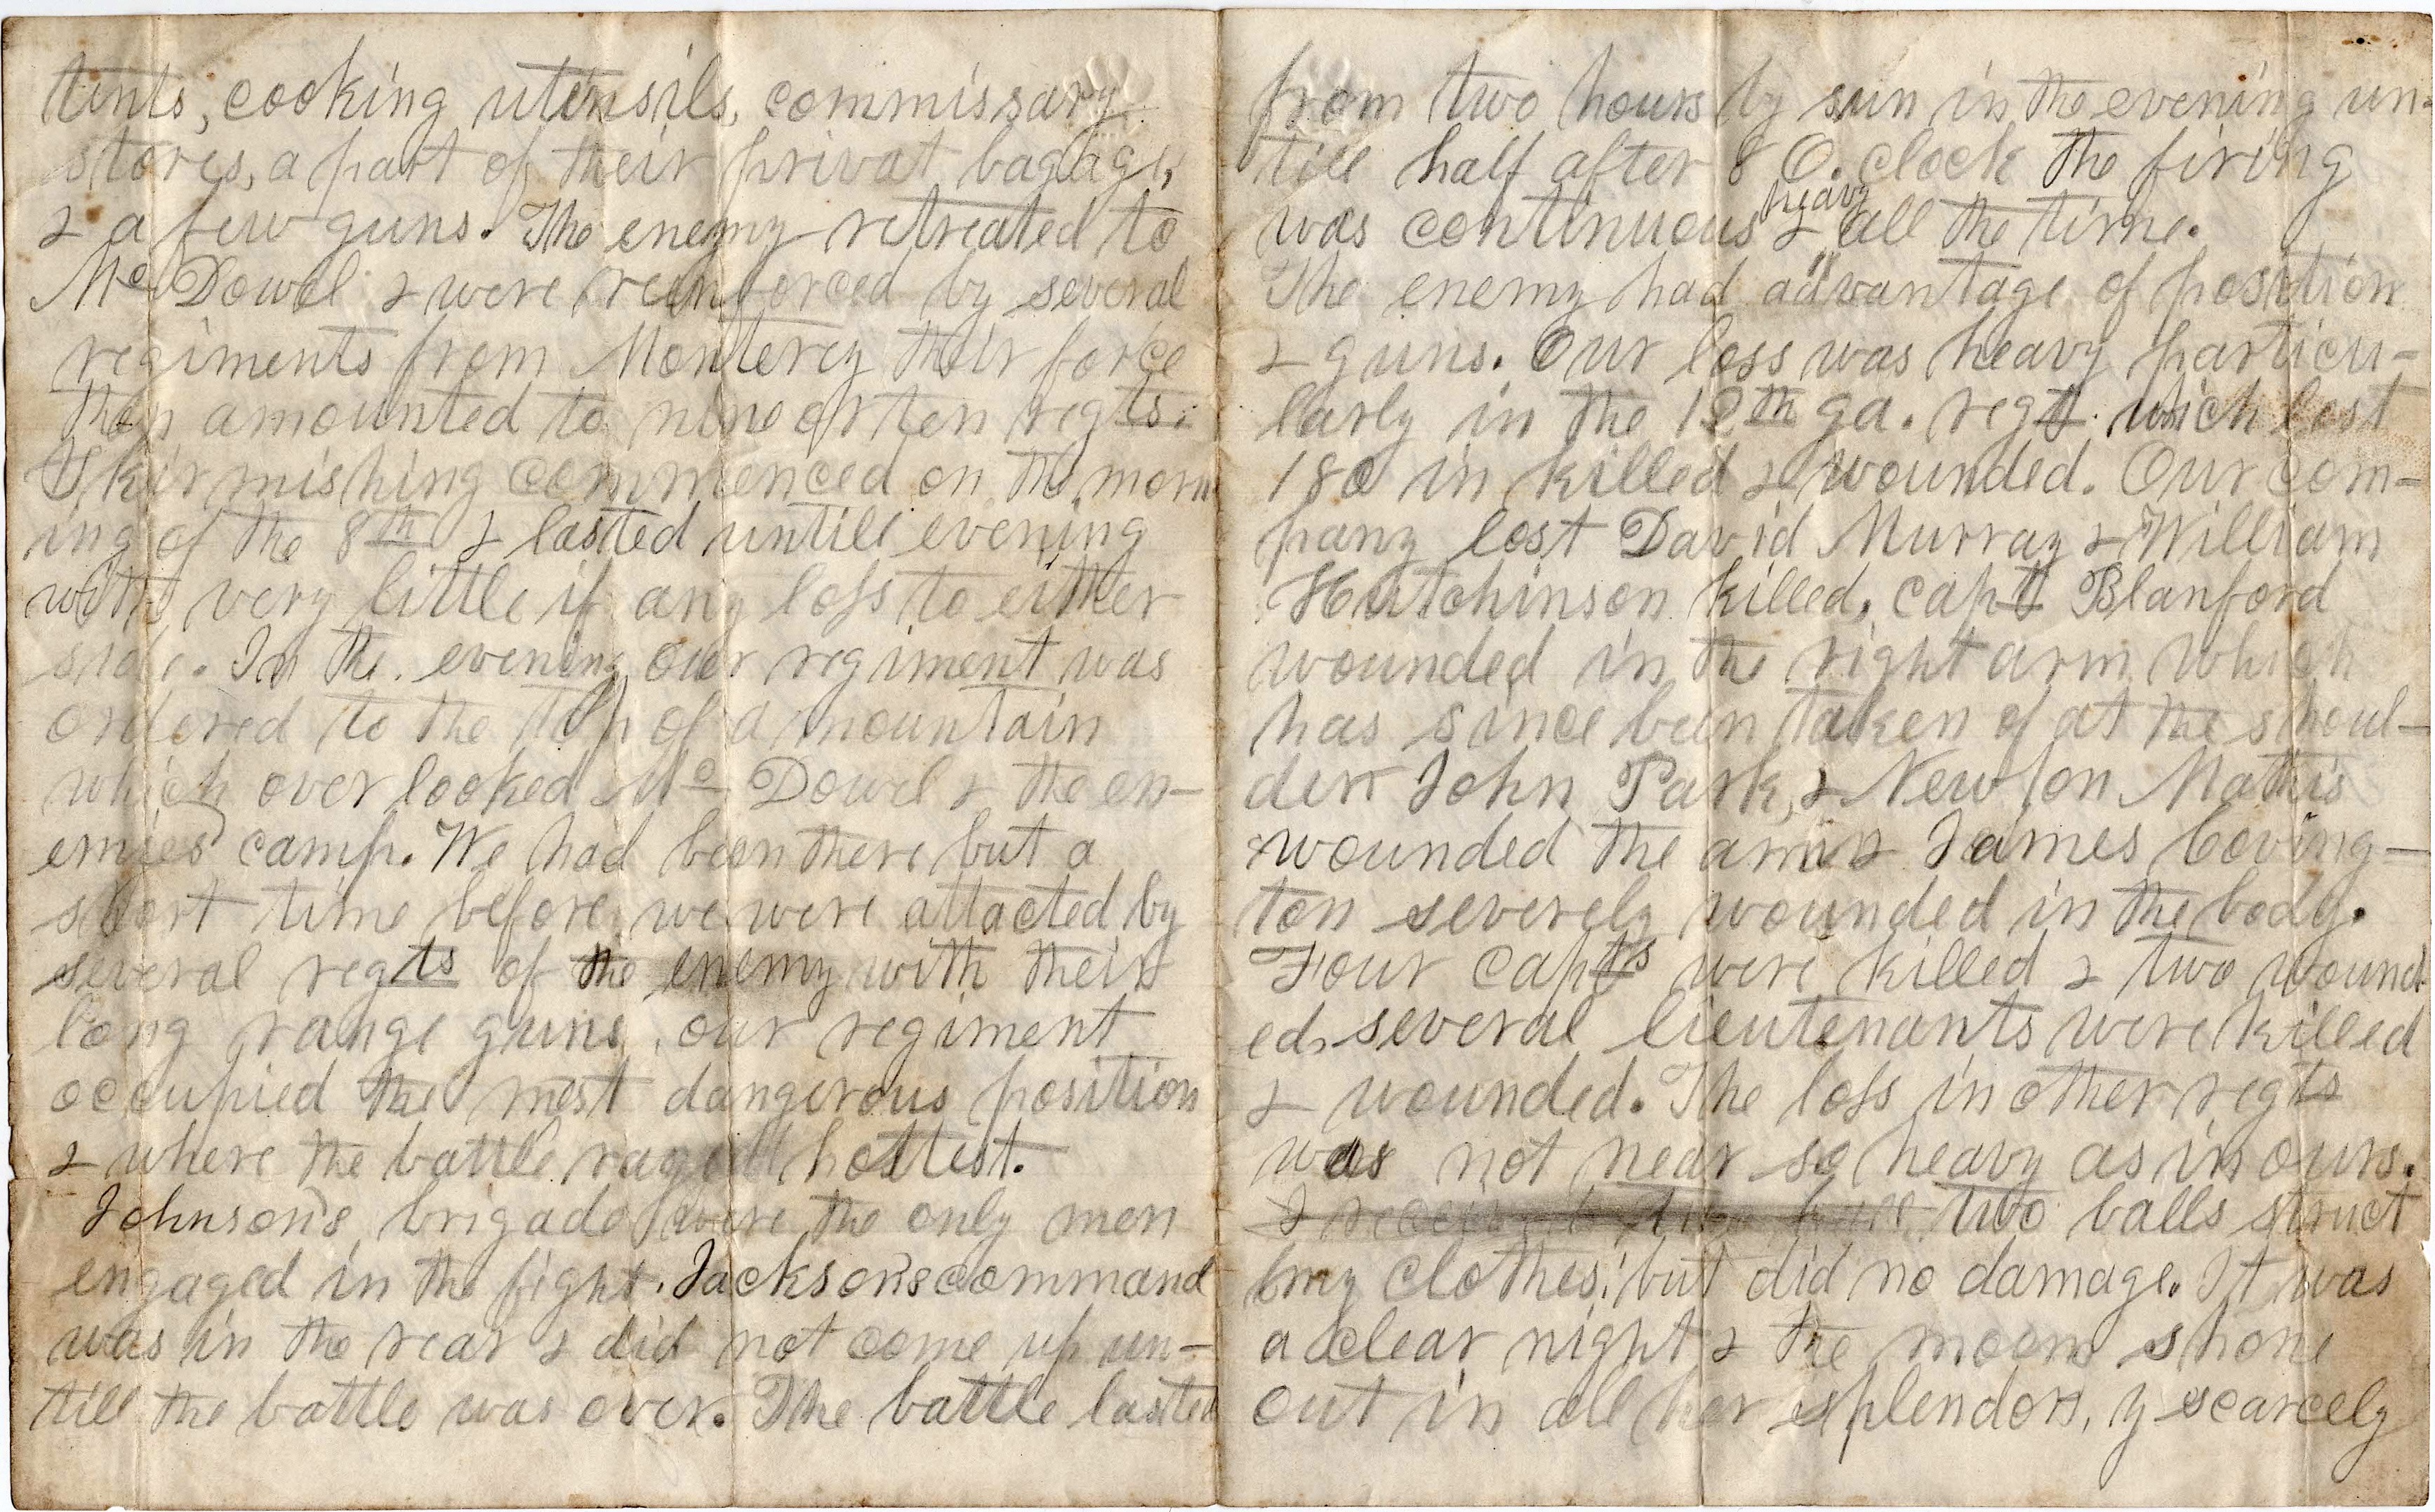 tents, cooking utensils, commissary
stores, a part of their privat bagage,
& a few guns. The enemy retreated to
Mc Dowel & were reenforced by several
regiments from Monterey their force
then amounted to nine or ten regts.
Skirmishing commenced on the morn
ing of the 8th & lasted untill evening
with very little if any loss to either
side. In the evening our regiment was
ordered to the top of a mountain
which over looked Mc Dowel & the en-
emies camp. We had been there but a
short time before we were attacted by
several regts of the enemy with their
long range guns, our regiment
occupied the most dangerous position
& where the battle raged hottest.
Johnson's brigade were the only men
engaged in the fight. Jackson's command
was in the rear & did not come up un-
till the battle was over. The battle lasted
from two hours by sun in the evening un-
till half after 8 O. clock the firing
was continuous & heavy all the time.
The enemy had advantage of position
& guns. Our loss was heavy particu-
larly in the 12th ga. regt. which lost
180 in killed & wounded. Our com-
pany lost David Murray & William
Hutchinson killed, capt Blanford
wounded in the right arm which
has since been taken of at the shoul-
der John Park, & Newton Mathis
wounded the arm & James Coving-
ton severely wounded in the body.
Four capts were killed & two wound
ed, several lieutenants were killed
& wounded. The loss in other regts
was not near so heavy as in ours.
I received two ball two balls struct
my clothes, but did no damage. It was
a clear night & the moon shone
out in all her splendor, y scarcely